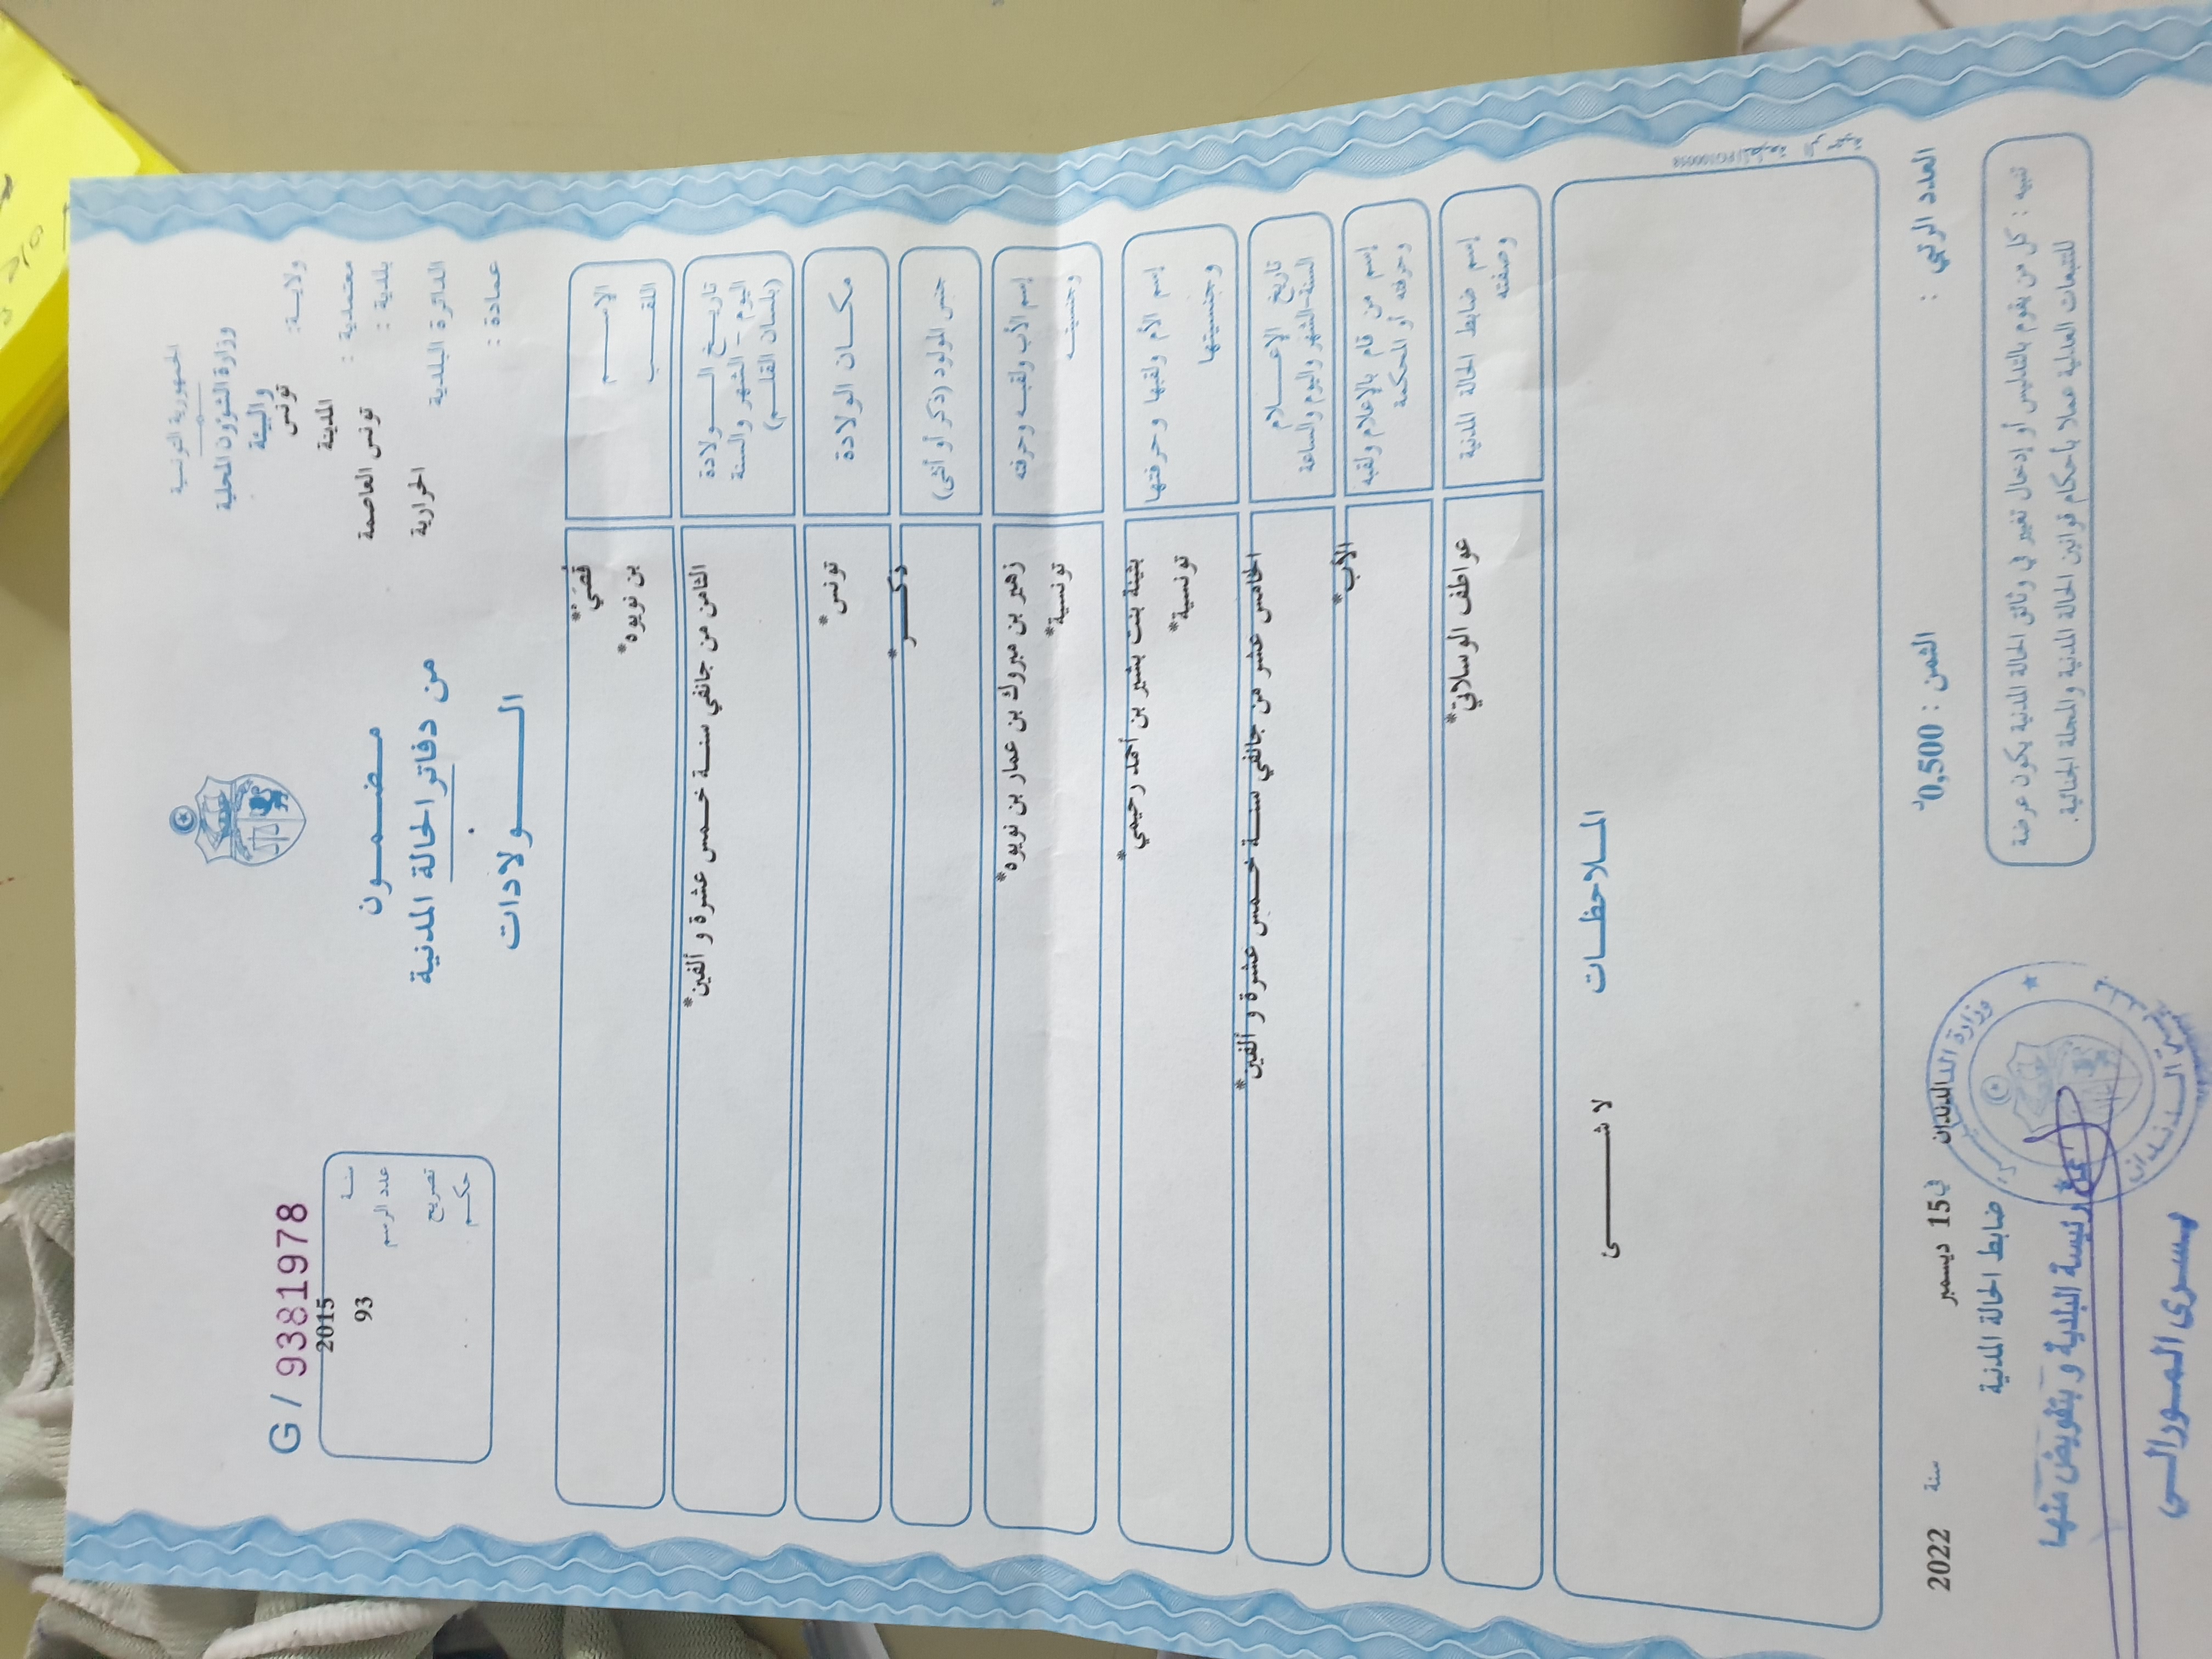 الجمهورية التونسية
وزارة الشؤون المحلية
والبيئة
ولايـــة: تونس
معتمدية : المدينة
بلدية : تونس العاصمة
الدائرة البلدية الحرارية
عمادة :
مـضـمــون
من دفاتر الحالة المدنية
الـــــولادات
G / 9381978
سنـة 2015
عدد الرسم 93
تصريح
حكـــم
الإســـــم قُصَي*
اللقـــــب بن نويوه*
تاريــــخ الـــــولادة
اليوم - الشهر والسنة
(بلسان القلـــم)
الثامن من جانفي سنـــة خــمس عشرة و ألفين*
مكـــان الولادة تونس*
جنس المولود (ذكر أو أنثى) ذكــــر*
إسم الأب ولقبـه وحرفته زهير بن مبروك بن عمار بن نويوه*
وجنسيتــه تونسية*
إسم الأم ولقبها وحرفتها بثينة بنت بشير بن أحمد رحيمي*
وجنسيتها تونسية*
تاريخ الإعـــلام
السنة-الشهر واليوم والساعة
الخامس عشر من جانفي سنـــة خــمس عشرة و ألفين*
إسم من قام بالإعلام ولقبه
وحرفته أو المحكمة
الأب*
إسم ضابط الحالة المدنية
وصفته
عواطف الوسلاتي*
المــلاحظــات
لا شـــــــئ
العدد الرتبي :
الثمن : 0,500د
الدندان في 15 ديسمبر سنة 2022
ضابط الحالة المدنية
تنبيه : كل من يقوم بالتدليس أو إدخال تغيير في وثائق الحالة المدنية يكون عرضة
للتتبعات العدلية عملا بأحكام قوانين الحالة المدنية والمجلة الجنائية.
عن رئيسة البلدية و بتفويض منها
يسرى الموراالي